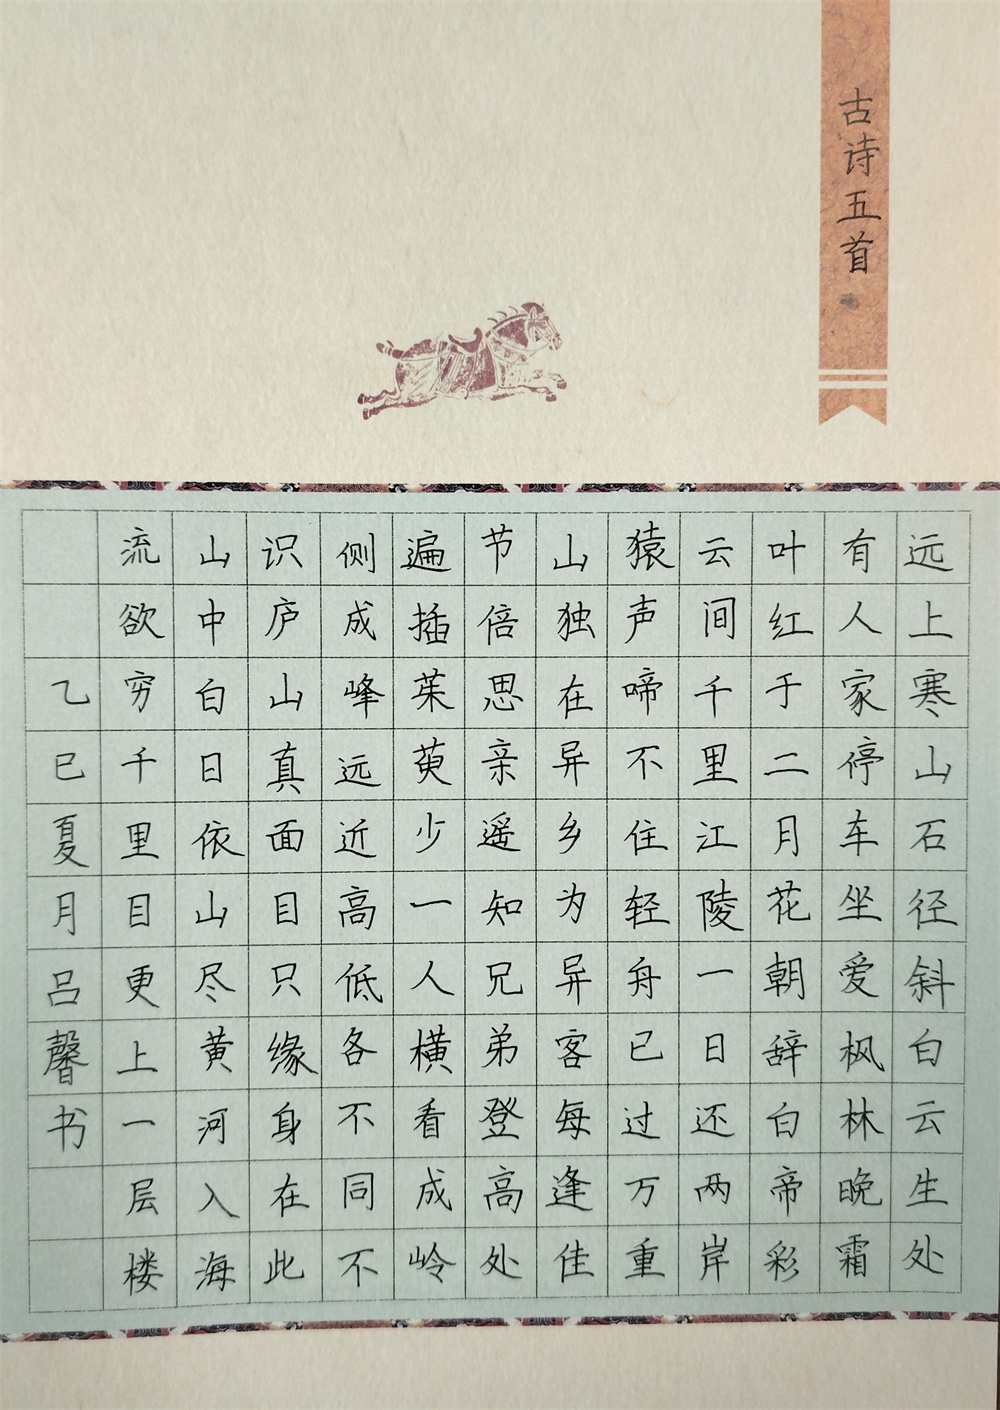 古诗五首
远上寒山石径斜白云生处
有人家停车坐爱枫林晚霜
叶红于二月花朝辞白帝彩
云间千里江陵一日还两岸
猿声啼不住轻舟已过万重
山独在异乡为异客每逢佳
节倍思亲遥知兄弟登高处
遍插茱萸少一人横看成岭
侧成峰远近高低各不同不
识庐山真面目只缘身在此
山中白日依山尽黄河入海
流欲穷千里目更上一层楼
乙巳夏月吕馨书